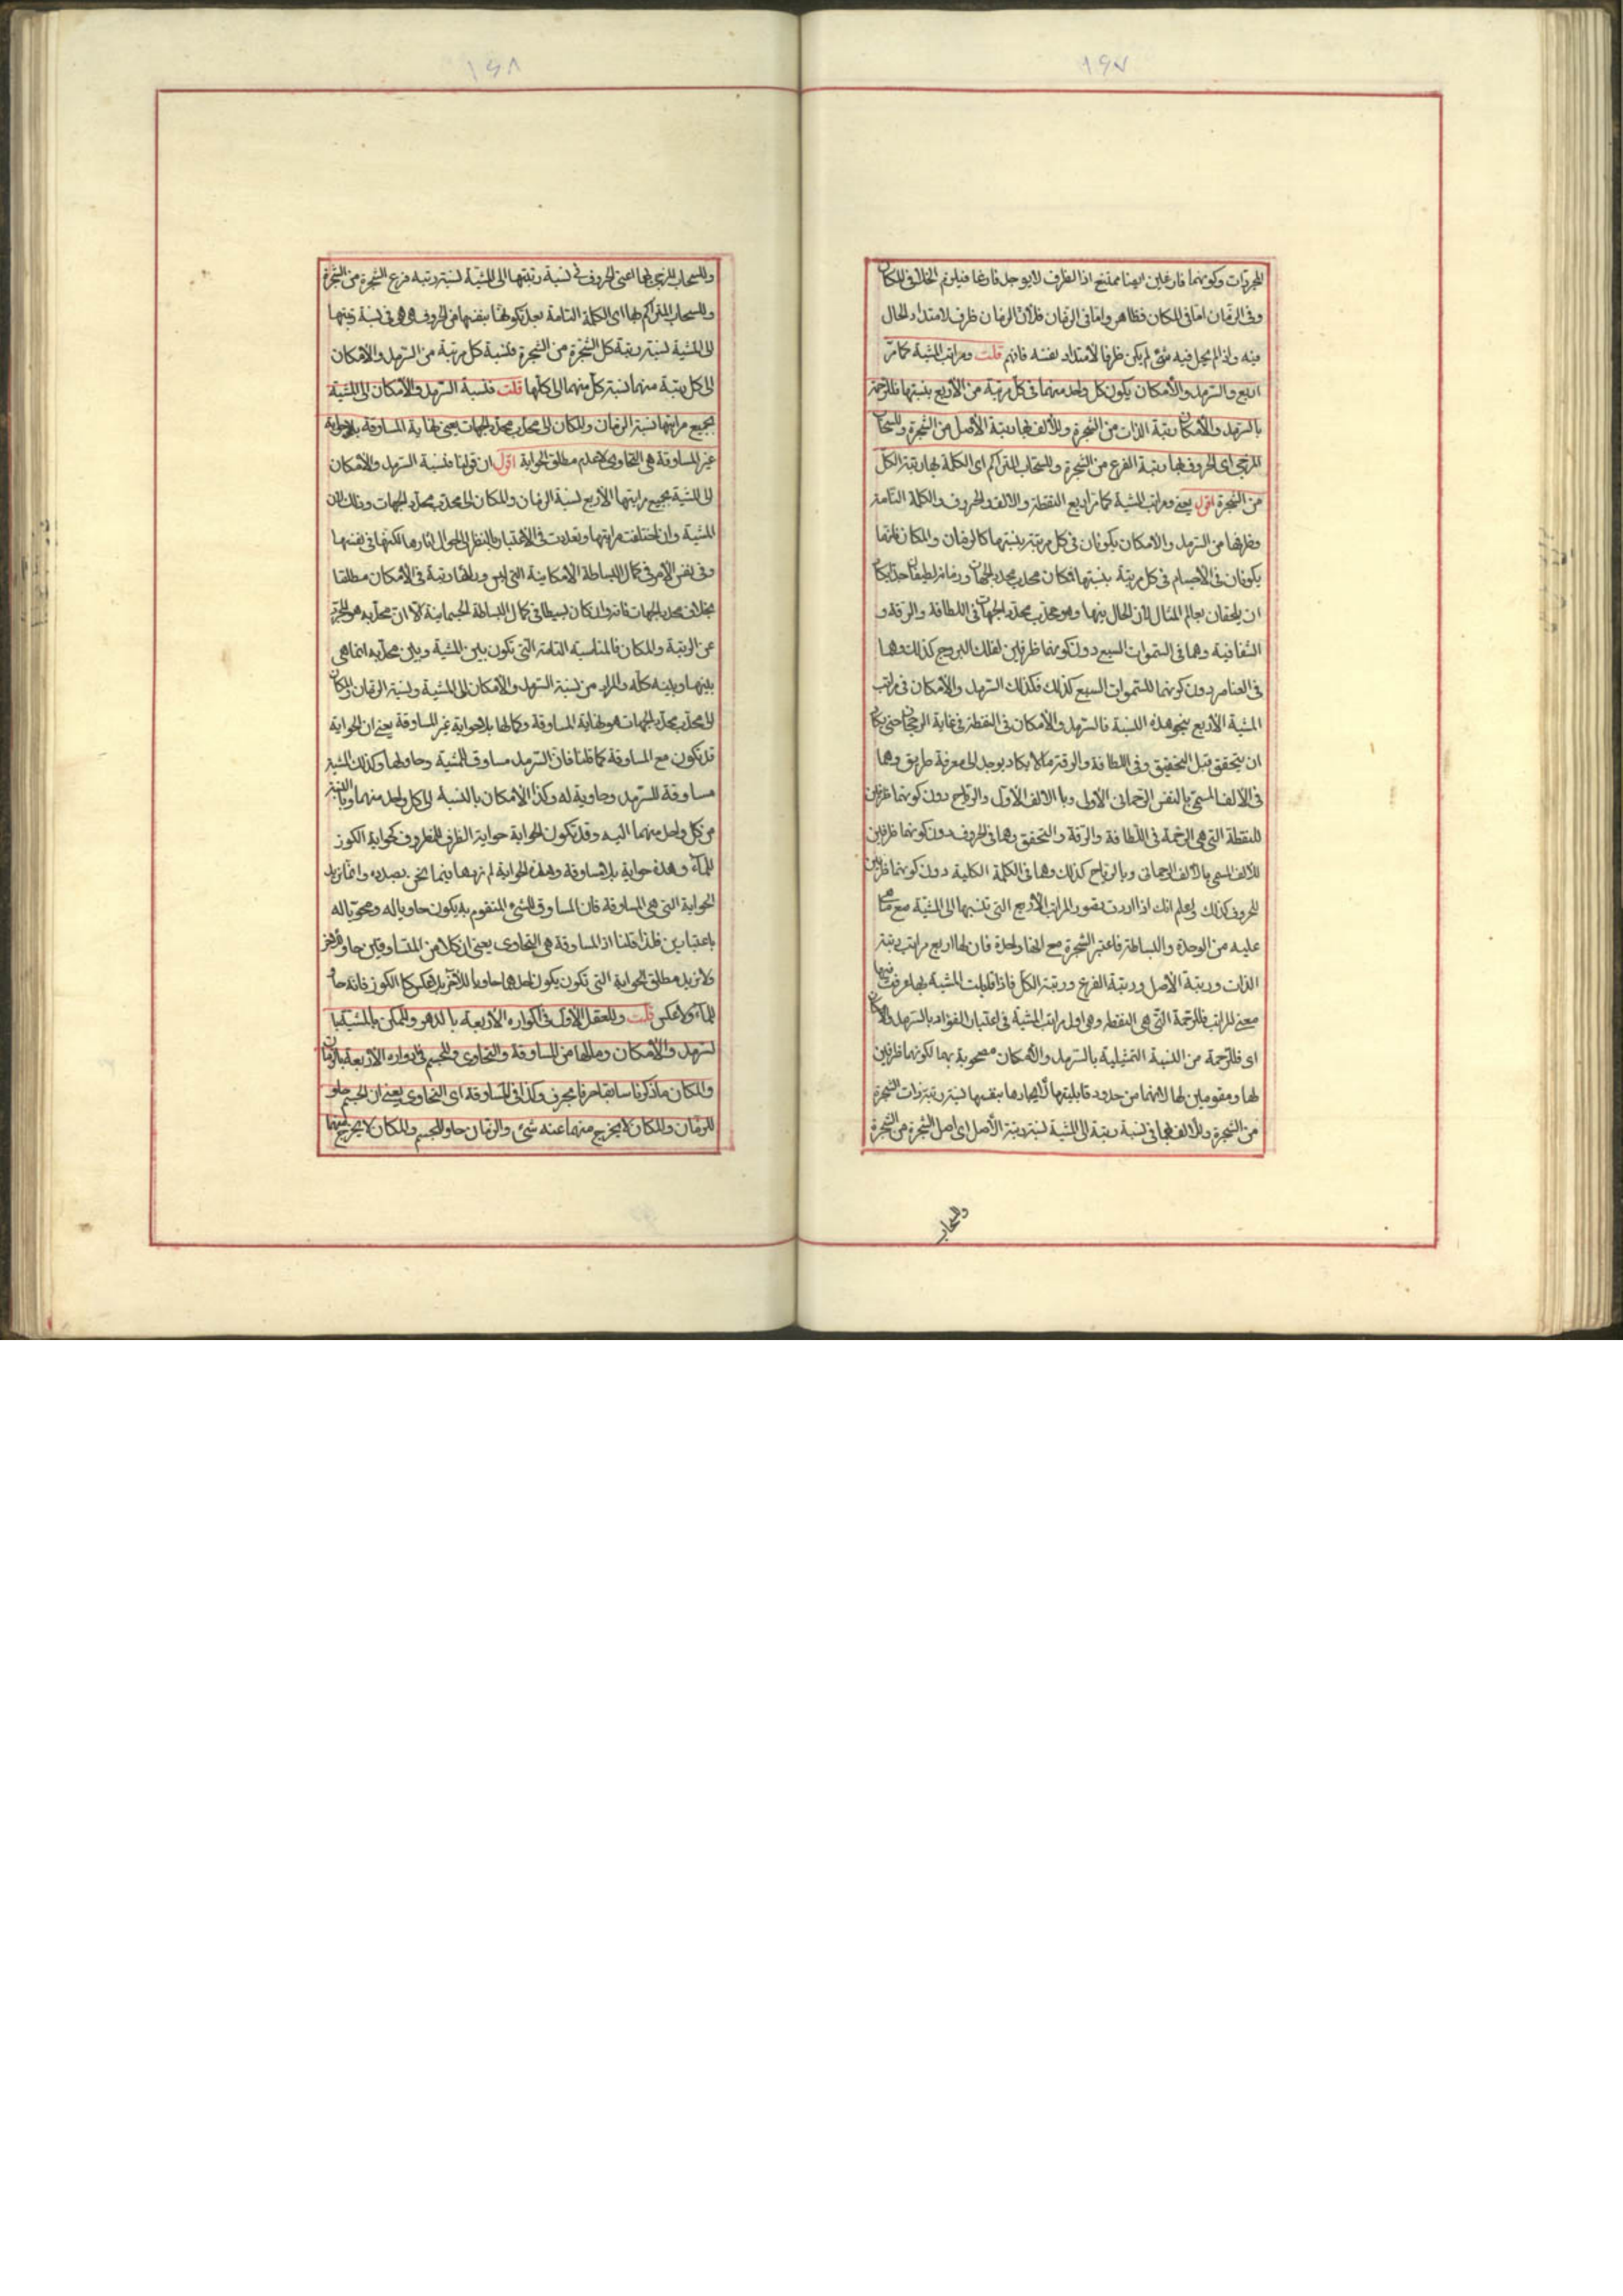 ١٩٧
المجردات وكونهما فارغين ايضا ممتنع اذ الظرف لا يوجد فارغا فيلزم الخلاء في المكان
وفي الزمان اما في المكان فظاهر واما في الزمان فلأن الزمان ظرف لامتداد الحال
فيه واذا لم يحل فيه شئ لم يكن ظرفا لامتداد نفسه فافهم قلت ومراتب المشية كما مر
اربع والسرمد والأمكان يكون كل واحد منهما في كل مرتبة من الأربع بنسبتها فللرحمة
بالسرمد والأمكان رتبة الذات من الشجرة وللألف بهما رتبة الأصل من الشجرة وللسحاب
المزجى اى الحروف بهما رتبة الفرع من الشجرة وللسحاب المتراكم اى الكلمة بهما رتبة الكل
من الشجرة اقول يعنى ومراتب المشية كما مر اربع النقطة والالف والحروف والكلمة التامة
وظرفها من السرمد والامكان يكونان في كل مرتبة بنسبتها كالزمان والمكان فانهما
يكونان في الأجسام في كل مرتبة بنسبتها فمكان محدب محدد الجهات وزمانه لطيفان جدا يكاد
ان يلحقان بعالم المثال لأن الحال بينها وهو محدب محدد الجهات في اللطافة والرقة و
الشفافية وهما في السموات السبع دون كونهما ظرفين لفلك البروج كذلك وهما
في العناصر دون كونهما للسموات السبع كذلك فكذلك السرمد والأمكان في مراتب
المشية الأربع بنحو هذه النسبة فالسرمد والأمكان في النقطة في غاية الرجحان حتى يكاد
ان يتحقق قبل التحقيق وفي اللطافة والرقة مالا يكاد يوجد الى معرفة طريق وهما
في الألف المسمى بالنفس الرحمانى الأولى وبالالف الأول والرياح دون كونهما ظرفين
للنقطة التي هي الرحمة في اللطافة والرقة والتحقق وهما في الحروف دون كونهما ظرفين
للألف المسمى بالألف الرحمانى وبالرياح كذلك وهما في الكلمة الكلية دون كونهما ظرفين
للحروف كذلك واعلم انك اذا اردت تصور المراتب الأربع التي تنسبها الى المشية مع ما هي
عليه من الوحدة والبساطة فاعتبر الشجرة مع انها واحدة فان لها اربع مراتب رتبة
الذات ورتبة الأصل ورتبة الفرع ورتبة الكل فاذا قابلت المشية بها عرفت
معنى المراتب فللرحمة التي هي النقطة وهي اول مراتب المشية في اعتبار الفؤاد بالسرمد والأمكان
اى فللرحمة من النسبة التمثيلية بالسرمد والأمكان مصحوبة بهما لكونهما ظرفين
لها ومقومين لها لانهما من حدود قابليتها لأيجادها بنفسها نسبة رتبة ذات الشجرة
من الشجرة وللألف بهما في نسبة رتبة الى المشية نسبة رتبة الأصل اى اصل الشجرة من الشجرة
والسحاب
١٩٨
وللسحاب المزجى بهما اعنى الحروف في نسبة رتبتها الى المشية نسبة رتبة فرع الشجرة من الشجرة
وللسحاب المتراكم بهما اى الكلمة التامة بعد تكونها بنفسها من الحروف في نسبة رتبتها
الى المشية نسبة رتبة كل الشجرة من الشجرة فنسبة كل مرتبة من السرمد والأمكان
الى كل رتبة منهما نسبة كل منهما الى كلها قلت فنسبة السرمد والأمكان الى المشية
بجميع مراتبها نسبة الزمان والمكان الى محدب محدد الجهات يعنى نهاية المساوقة بلا حواية
غير المساوقة هي التحاوى لا عدم مطلق الحواية اقول ان قولنا فنسبة السرمد والأمكان
الى المشية بجميع مراتبها الأربع نسبة الزمان والمكان الى محدب محدد الجهات وذلك لان
المشية وان اختلفت مراتبها وتعددت في الأعتبار بالنظر الى احوال اثارها لكنها في نفسها
وفي نفس الأمر في كمال البساطة الأمكانية التي ليس ورائها رتبة في الأمكان مطلقا
بخلاف محدد الجهات فانه وان كان بسيطا في كمال البساطة الجسمانية الا ان محدبه هو المجرد
عن الرتبة والمكان فالمناسبة التامة التي تكون بين المشية وبين محدبه انما هي
بينها وبينه كله والمراد من نسبة السرمد والأمكان الى المشية ونسبة الزمان والمكان
الى محدب محدد الجهات هو نهاية المساوقة وكمالها بلا حواية غير المساوقة يعنى ان الحواية
قد تكون مع المساوقة كما قلنا فان السرمد مساوق للمشية وحاو لها وكذلك المشية
مساوقة للسرمد وحاوية له وكذا الأمكان بالنسبة الى كل واحد منهما وبالنسبة
من كل واحد منهما اليه وقد تكون الحواية حواية الظرف للمظروف كحواية الكوز
للماء وهذه حواية بلا مساوقة وهذه الحواية لم نردها فيما نحن بصدده وانما نريد
الحواية التي هي المساوقة فان المساوق للشئ المتقوم به يكون حاويا له ومحويا له
باعتبارين فلذا قلنا اذ المساوقة هي التحاوى يعنى ان كلا من المتساوقين حاو للاخر
ولا نريد مطلق الحواية التي تكون يكون احدهما حاويا للآخر بلا عكس كالكوز فانه حاو
للماء ولا عكس قلت وللعقل الأول في اكواره الأربعة بالدهر والممكن ما للمشية با
لسرمد والأمكان وما لها من المساوقة والتحاوى وللجسم في ادواره الأربعة بالزمان
والمكان ما ذكرنا سابقا حرفا بحرف وكذا في المساوقة اى التحاوى يعنى ان الجسم حاو
للزمان والمكان لا يخرج منهما عنه شئ والزمان حاو للجسم والمكان لا يخرج منهما